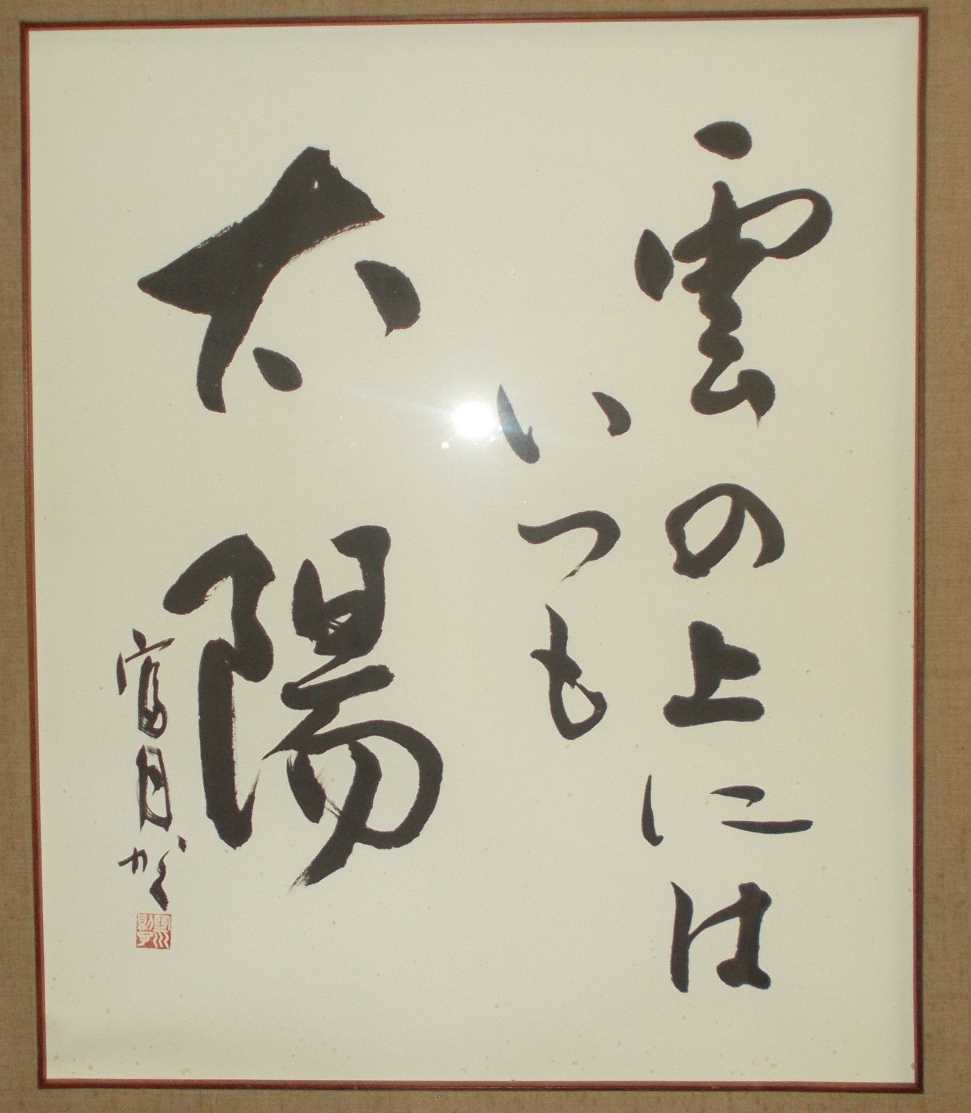 雲の上には
いつも
太陽
富月かく